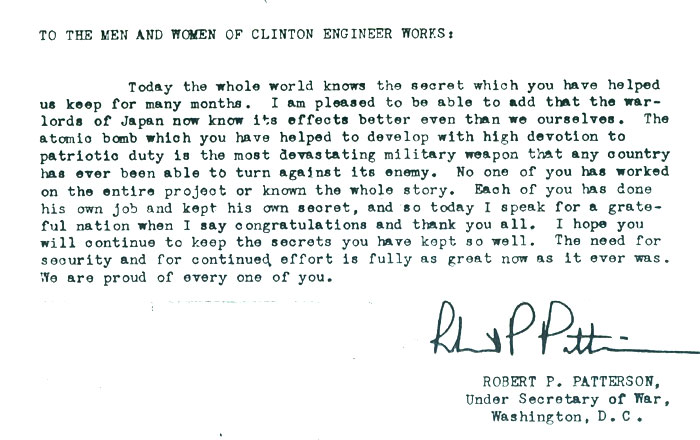 TO THE MEN AND WOMEN OF CLINTON ENGINEER WORKS:
Today the whole world knows the secret which you have helped
us keep for many months. I am pleased to be able to add that the war-
lords of Japan now know its effects better even than we ourselves. The
atomic bomb which you have helped to develop with high devotion to
patriotic duty is the most devastating military weapon that any country
has ever been able to turn against its enemy. No one of you has worked
on the entire project or known the whole story. Each of you has done
his own job and kept his own secret, and so today I speak for a grate-
ful nation when I say congratulations and thank you all. I hope you
will continue to keep the secrets you have kept so well. The need for
security and for continued effort is fully as great now as it ever was.
We are proud of every one of you.
Robert P Patterson
ROBERT P. PATTERSON,
Under Secretary of War,
Washington, D. C.